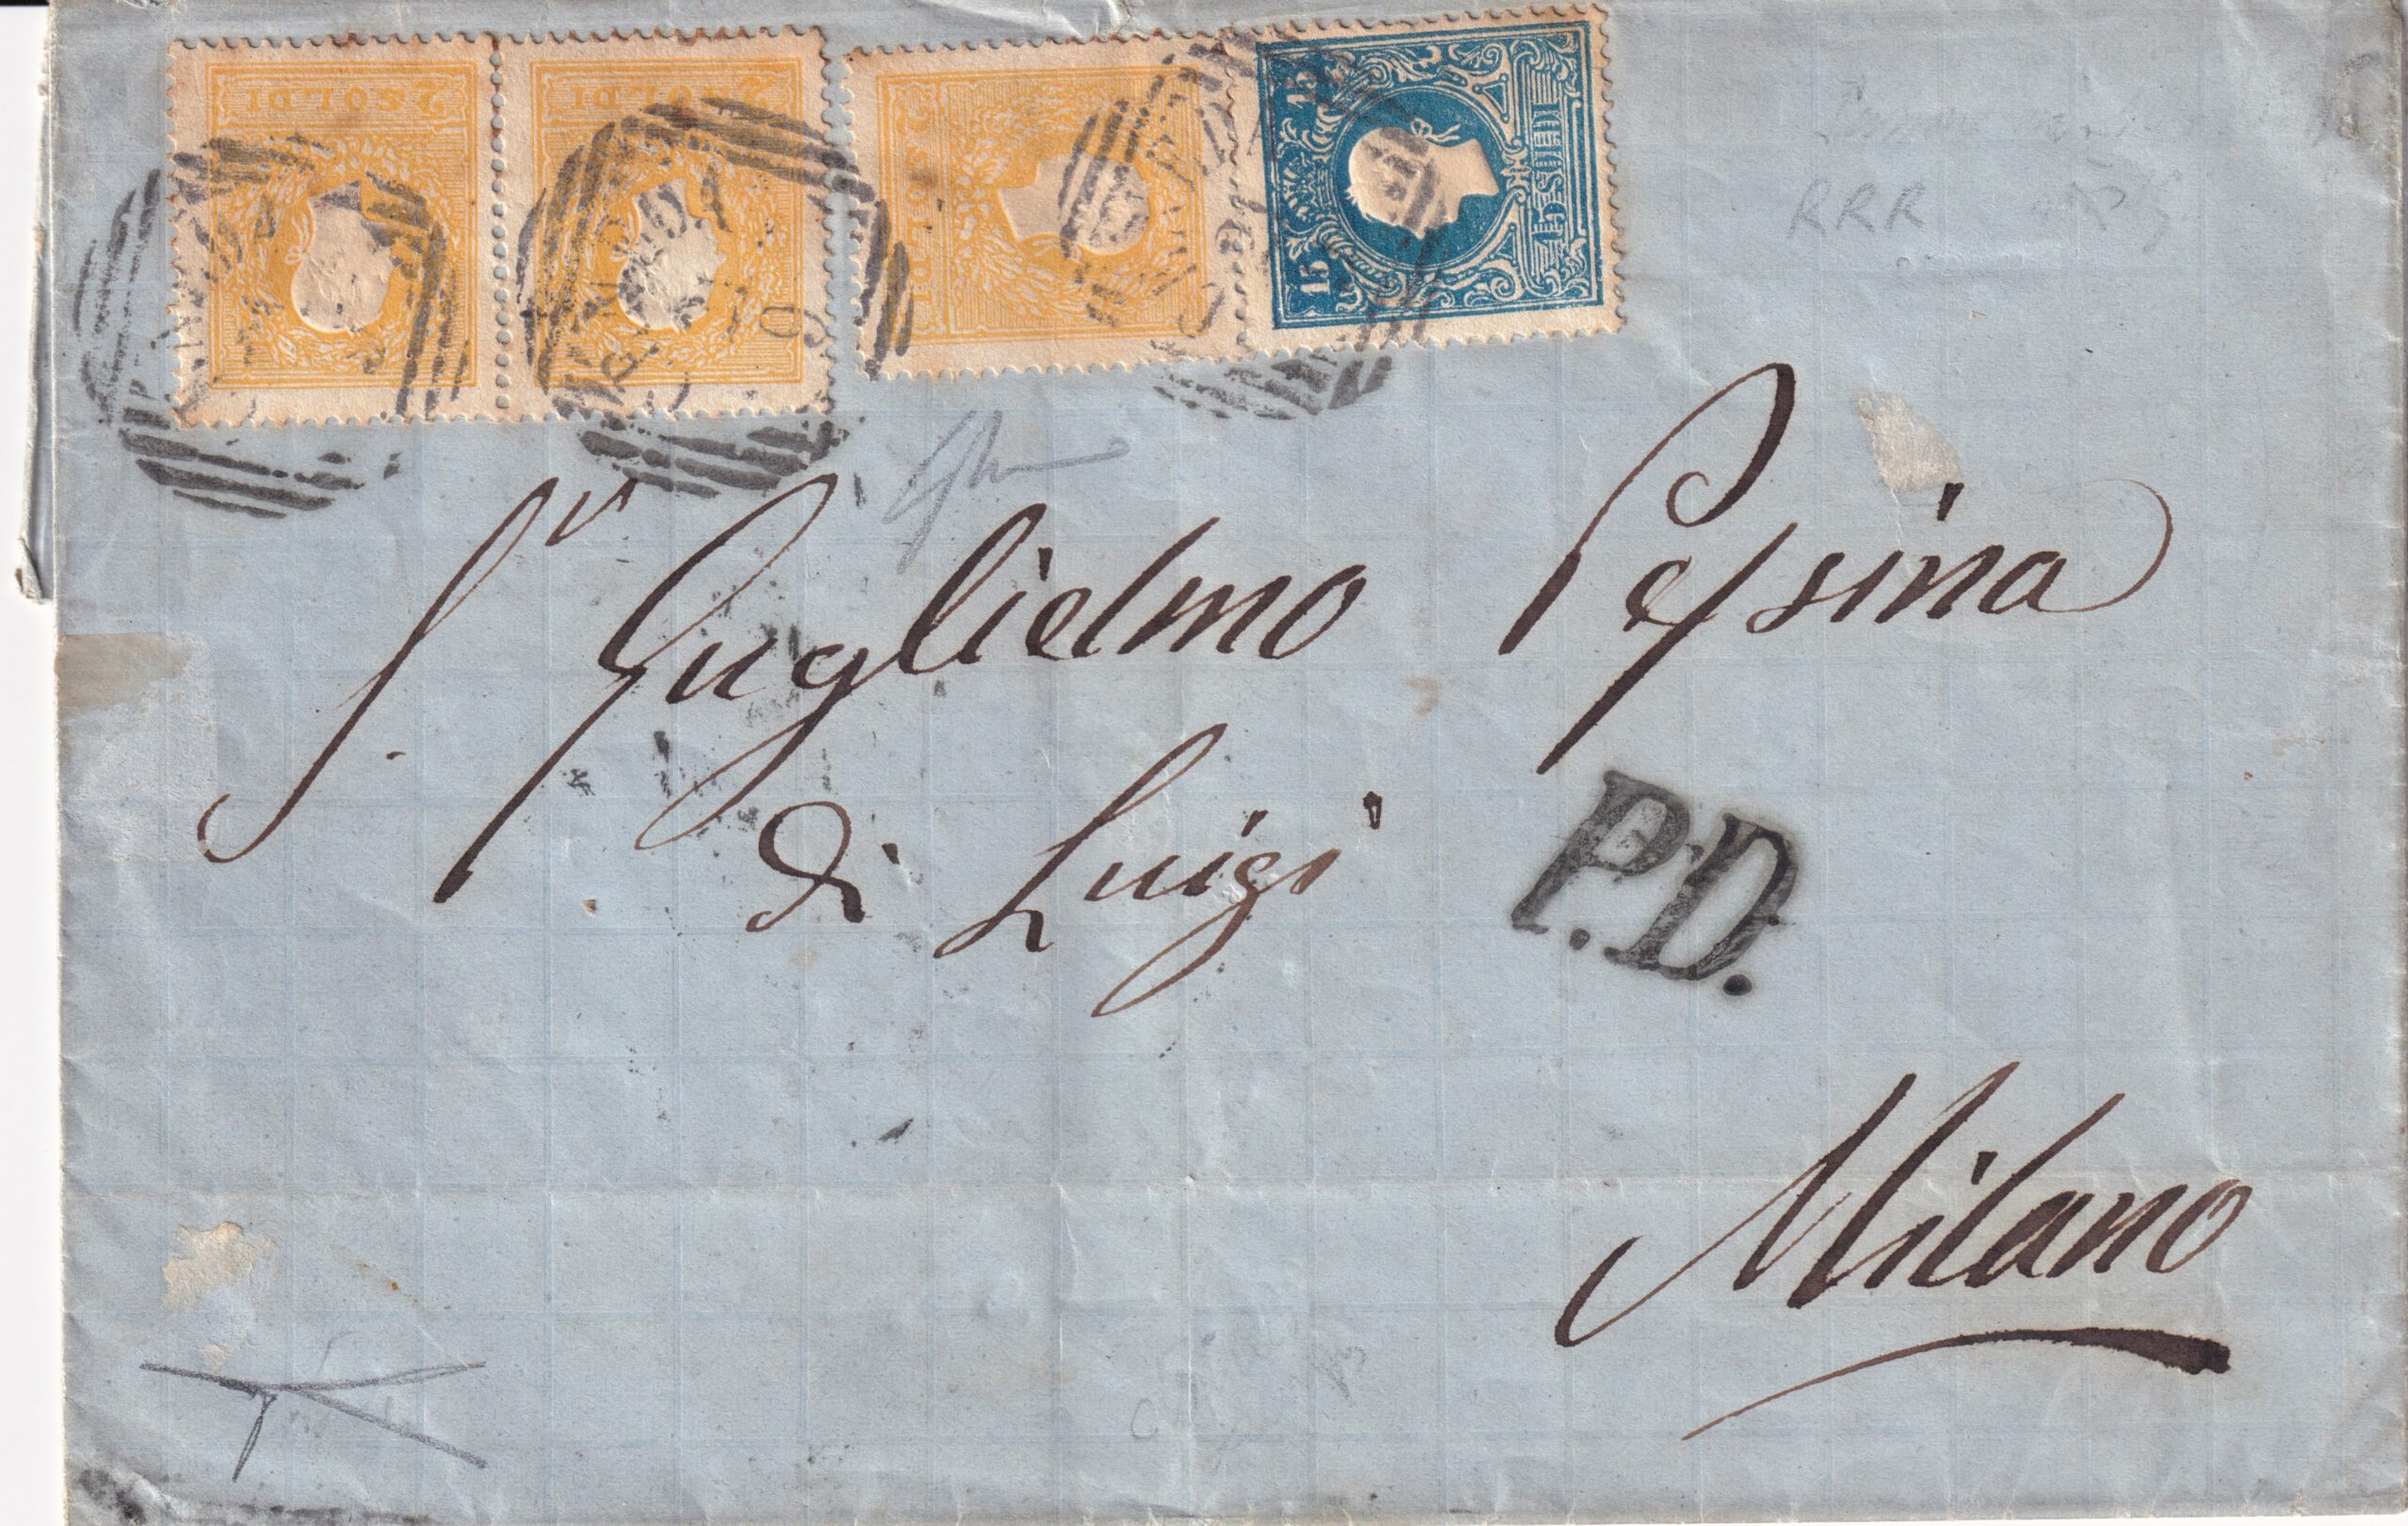 2 SOLDI
2 SOLDI
2 SOLDI
15 15
15 SOLDI
RRR
Sr Guglielmo Pessina
di Luigi
P.D.
Milano